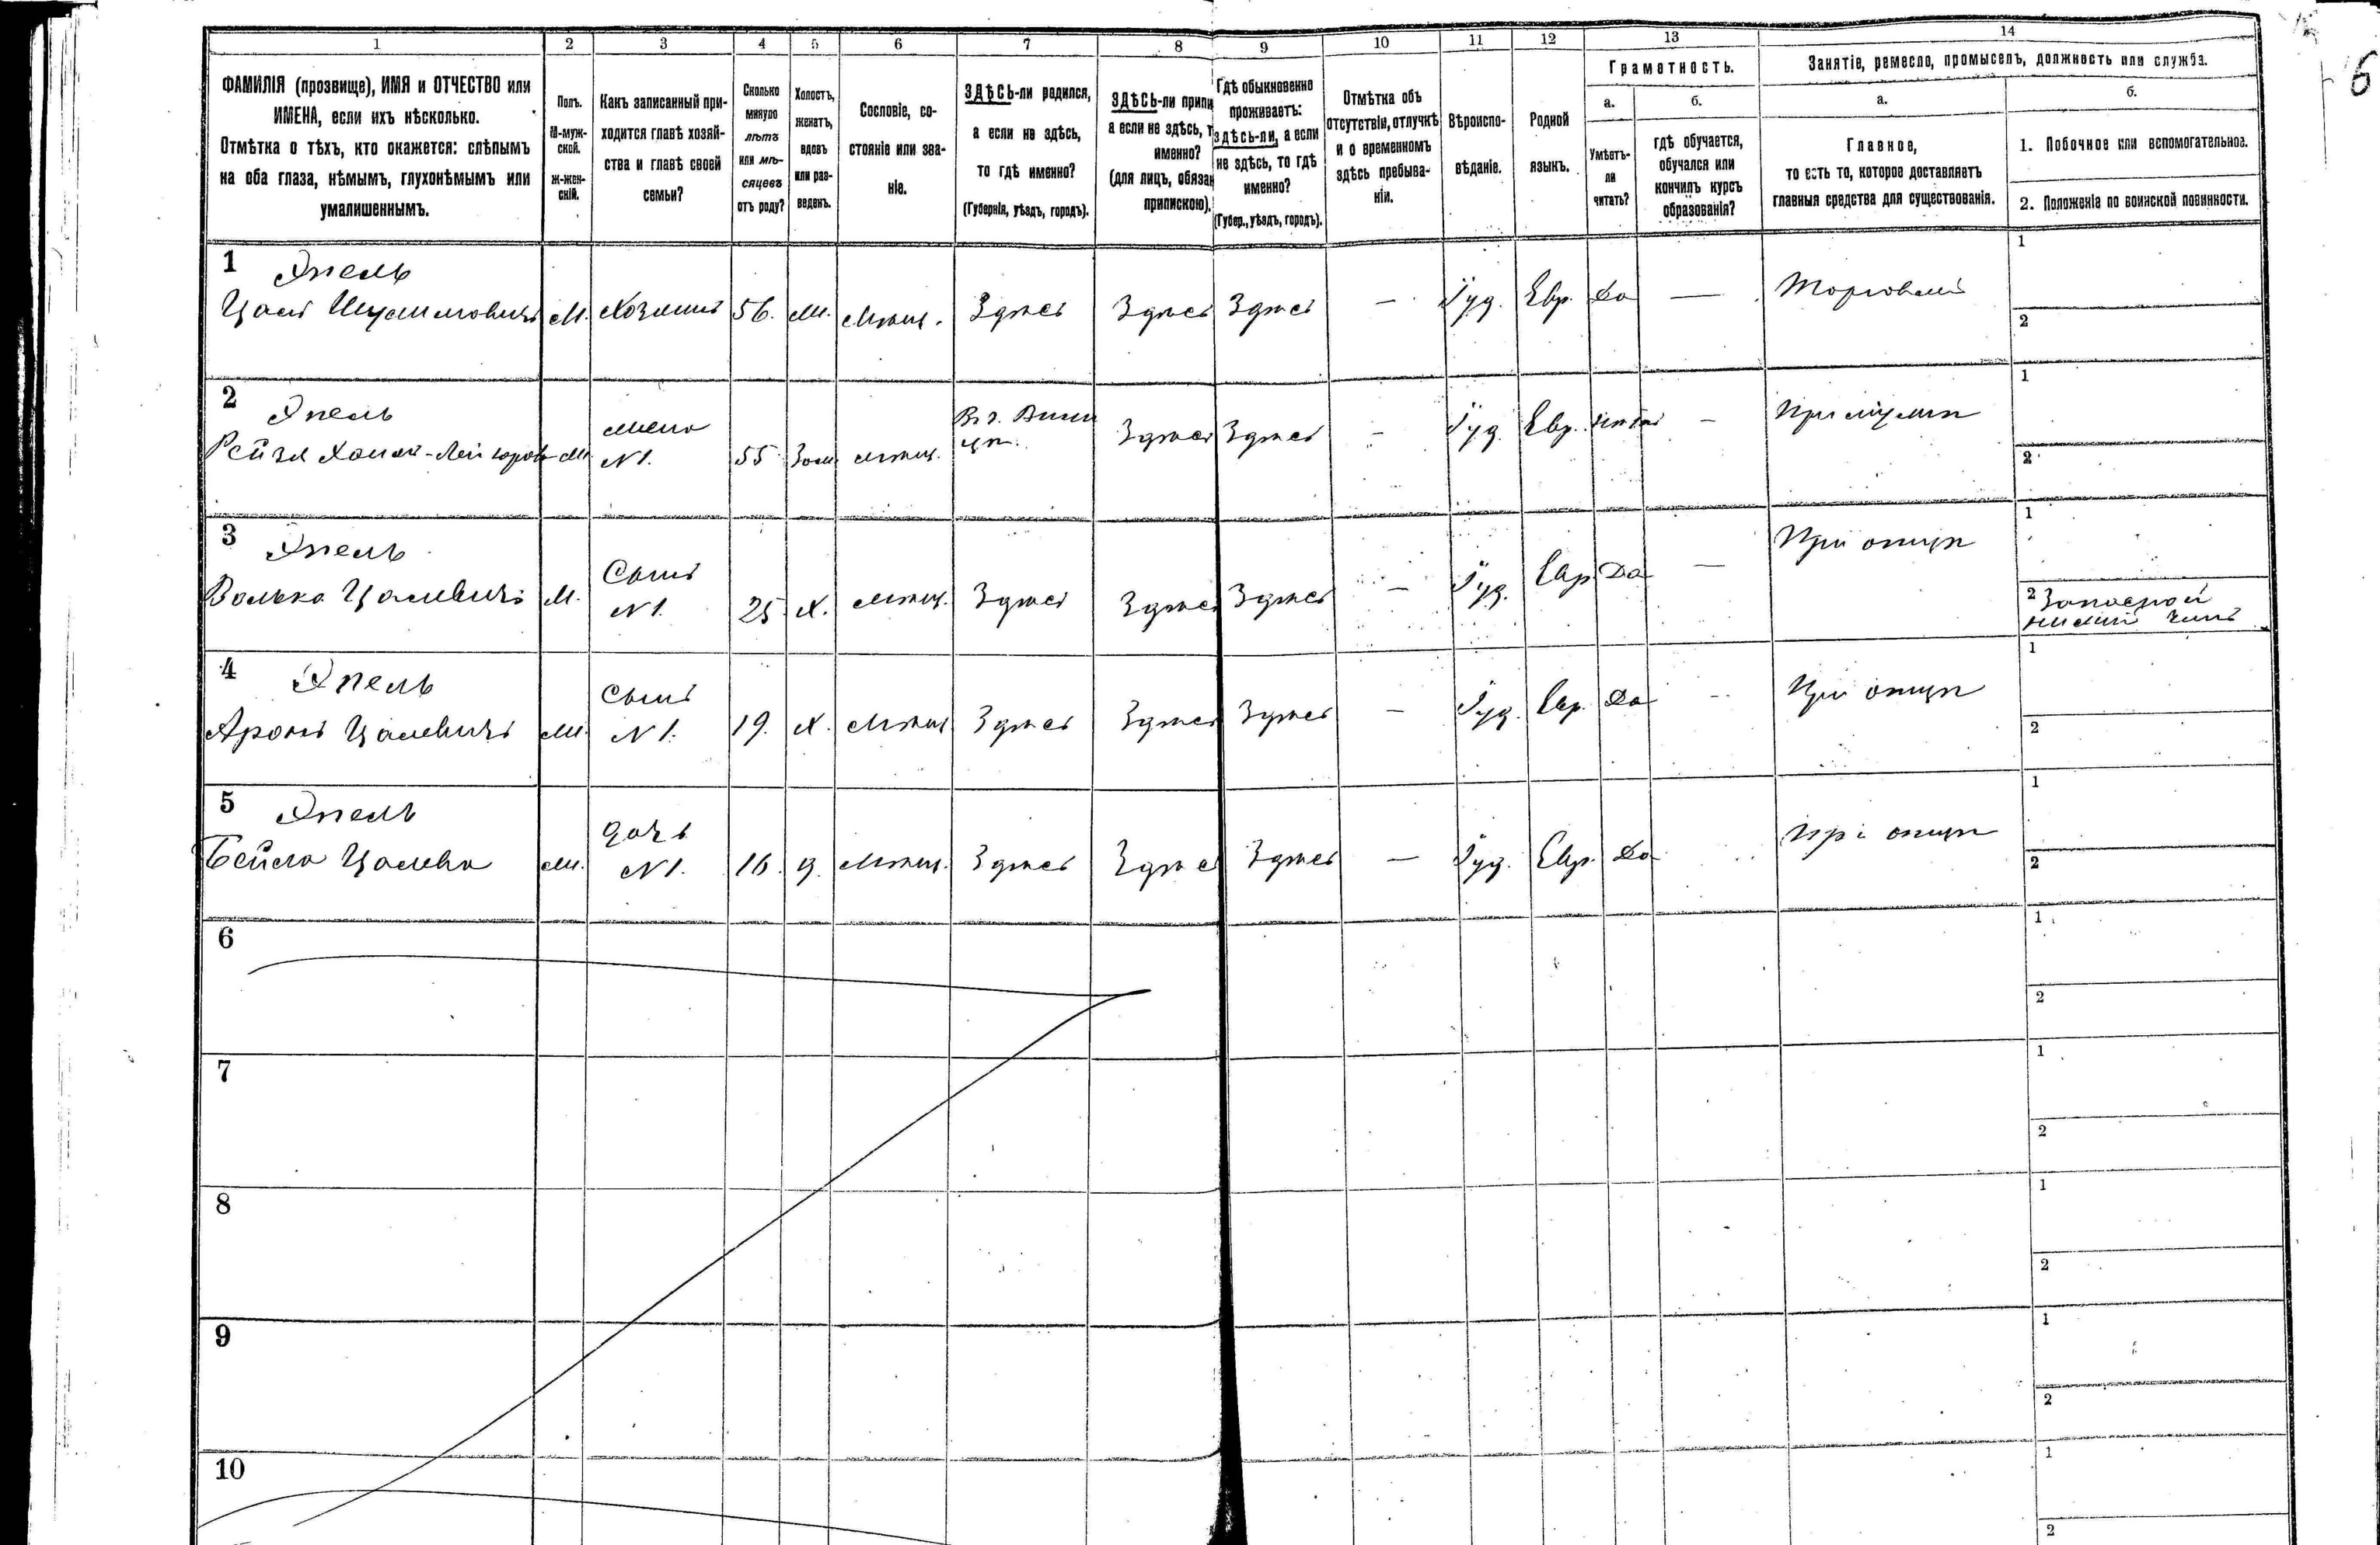 1 2 3 4 5 6 7 8 9 10 11 12 13 14
6
ФАМИЛІЯ (прозвище), ИМЯ и ОТЧЕСТВО или
ИМЕНА, если ихъ нѣсколько.
Отмѣтка о тѣхъ, кто окажется: слѣпымъ
на оба глаза, нѣмымъ, глухонѣмымъ или
умалишеннымъ.
Полъ.
М-муж-
ской.
Ж-жен-
скій.
Какъ записанный при-
ходится главѣ хозяй-
ства и главѣ своей
семьи?
Сколько
минуло
лѣтъ
или мѣ-
сяцевъ
отъ роду?
Холостъ,
женатъ,
вдовъ
или раз-
веденъ.
Сословіе, со-
стояніе или зва-
ніе.
ЗДѢСЬ-ли родился,
а если не здѣсь,
то гдѣ именно?
(Губернія, уѣздъ, городъ).
ЗДѢСЬ-ли припи
а если не здѣсь, т
именно?
(для лицъ, обязан
припискою).
Гдѣ обыкновенно
проживаетъ:
здѣсь-ли, а если
не здѣсь, то гдѣ
именно?
(Губер., уѣздъ, городъ).
Отмѣтка объ
отсутствіи, отлучкѣ
и о временномъ
здѣсь пребыва-
ніи.
Вѣроиспо-
вѣданіе.
Родной
языкъ.
Грамотность.
а.
Умѣетъ-
ли
читать?
б.
гдѣ обучается,
обучался или
кончилъ курсъ
образованія?
Занятіе, ремесло, промыселъ, должность или служба.
а.
Главное,
то есть то, которое доставляетъ
главныя средства для существованія.
б.
1. Побочное или вспомогательное.
2. Положеніе по воинской повинности.
1 Эпель
М. Хозяинъ 56. Мѣщ. Здѣсь Здѣсь Здѣсь — Іуд. Евр. Да — Торговецъ
1
2
2 Эпель
Рейза
N 1. 55 Зам. Мѣщ. Здѣсь Здѣсь - Іуд. Евр. —
1
2
3 Эпель
Волько Цалевичъ М. Сынъ
N 1. 25 Х. Мѣщ. Здѣсь Здѣсь Здѣсь — Іуд. Евр. Да — При отцѣ
1
2 Запасной
нижній чинъ
4 Эпель
Аронъ Цалевичъ М. Сынъ
N 1. 19. Х. Мѣщ. Здѣсь Здѣсь Здѣсь — Іуд. Евр. Да - При отцѣ
1
2
5 Эпель
Бейла Цалева М. дочь
N 1. 16. д. Мѣщ. Здѣсь Здѣсь Здѣсь — Іуд. Евр. Да При отцѣ
1
2
6
1
2
7
1
2
8
1
2
9
1
2
10
1
2